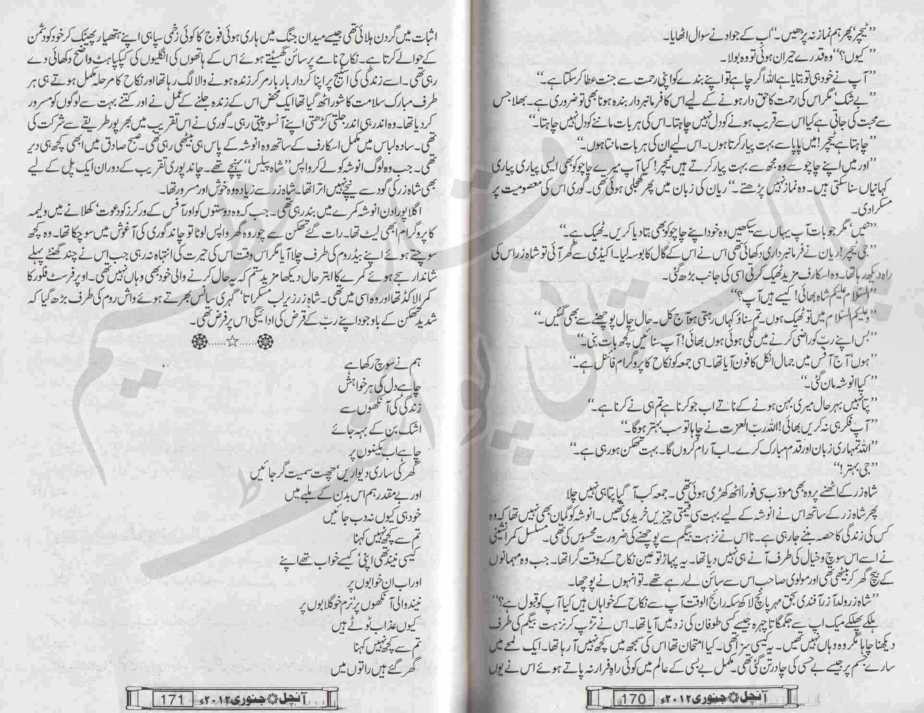 "ٹیچر پھر ہم نماز نہ پڑھیں۔" اب کے جواد نے سوال اٹھایا۔
"کیوں؟" وہ قدرے حیران ہوئی تو وہ بولا۔
"آپ نے خود ہی تو بتایا ہے اللہ اگر چاہے تو اپنے بندے کو اپنی رحمت سے جنت عطا کر سکتا ہے۔"
"بے شک' مگر اس کی رحمت کا حق دار ہونے کے لیے اس کا فرمانبردار بندہ ہونا بھی تو ضروری ہے۔ بھلا جس
سے محبت کی جاتی ہے کیا اس سے قریب ہونے کو دل نہیں چاہتا۔ اس کی ہر بات ماننے کو دل نہیں چاہتا۔"
"چاہتا ہے ٹیچر! میں پاپا سے بہت پیار کرتا ہوں۔ اس لیے ان کی ہر بات مانتا ہوں۔"
"اور میں اپنے چاچو سے وہ مجھ سے بہت پیار کرتے ہیں ٹیچر! کیا آپ میرے چاچو کو بھی ایسی پیاری پیاری
کہانیاں سنا سکتی ہیں۔ وہ نماز نہیں پڑھتے۔" ریان کی زبان میں پھر کھجلی ہوئی تھی۔ گوری اس کی معصومیت پر
مسکرا دی۔
"نہیں' مگر جو بات آپ یہاں سے سیکھیں وہ خود اپنے چاچو کو بھی بتا دیا کریں۔ ٹھیک ہے۔"
"جی ٹیچر! ریان نے فرمانبرداری دکھائی تھی اس نے اس کے گال کا بوسہ لیا۔ اکیڈمی سے گھر آئی تو شاہ زر اس کی
راہ دیکھ رہا تھا۔ وہ اسکارف مزید ٹھیک کرتی اسی کی جانب بڑھ گئی۔
"السلام علیکم شاہ بھائی! کیسے ہیں آپ؟"
"وعلیکم السلام میں تو ٹھیک ہوں۔ تم سناؤ کہاں رہتی ہو آج کل۔ حال چال پوچھنے سے بھی گئیں۔"
"بس اپنے رب کو راضی کرنے میں لگی ہوئی ہوں بھائی! آپ سنائیں کچھ بات بنی۔"
"ہوں آج آفس میں جمال انکل کا فون آیا تھا۔ اسی جمعہ کو نکاح کا پروگرام فائنل ہے۔"
"کیا انوشہ مان گئی۔"
"پتا نہیں بہرحال میری بہن ہونے کے ناتے اب جو کرنا ہے تم ہی نے کرنا ہے۔"
"آپ فکر ہی نہ کریں بھائی! اللہ رب العزت نے چاہا تو سب بہتر ہوگا۔"
"اللہ تمہاری زبان اور قدم مبارک کرے۔ اب آرام کروں گا۔ بہت تھکن ہو رہی ہے۔"
"جی بہتر!"
شاہ زر کے اٹھنے پر وہ بھی مودب سی فوراً اٹھ کھڑی ہوئی تھی۔ جمعہ کب آ گیا پتا ہی نہیں چلا
پھر شاہ زر کے ساتھ اس نے انوشہ کے لیے بہت سی قیمتی چیزیں خریدی تھیں۔ انوشہ کو گمان بھی نہیں تھا کہ وہ
کس کی زندگی کا حصہ بننے جا رہی ہے۔ نا اس نے نزہت بیگم سے پوچھنے کی ضرورت محسوس کی تھی۔ مسلسل کمرا نشینی
نے اسے اس سوچ و خیال کی طرف آنے ہی نہیں دیا تھا۔ یہ پہاڑ تو عین نکاح کے وقت گرا تھا۔ جب وہ مہمانوں
کے بیچ گھر کر بیٹھی تھی اور مولوی صاحب اس سے سائن لے رہے تھے۔ تو انہوں نے پوچھا۔
"شاہ زر ولد آزر آفندی بحق مہر پانچ لاکھ سکہ رائج الوقت آپ سے نکاح کے خواہاں ہیں کیا آپ کو قبول ہے؟"
ہلکے پھلکے میک اپ سے جگمگاتا چہرہ جیسے کسی طوفان کی زد میں آیا تھا۔ اس نے تڑپ کر نزہت بیگم کی طرف
دیکھنا چاہا مگر وہ وہاں نہیں تھیں۔ یہ کیسی سزا تھی۔ کیا امتحان تھا اس کی سمجھ میں کچھ نہیں آ رہا تھا۔ ایک لمحے میں
سارے جسم پر جیسے بے حسی کی چادر تن گئی تھی۔ مکمل بے بسی کے عالم میں کوئی راہ فرار نہ پاتے ہوئے اس نے یوں
آنچل جنوری ۲۰۱۲ء 170
اثبات میں گردن ہلائی تھی جیسے میدان جنگ میں ہاری ہوئی فوج کا کوئی زخمی سپاہی اپنے ہتھیار پھینک کر خود کو دشمن
کے حوالے کرتا ہے۔ نکاح نامے پر سائن گھسیٹتے ہوئے اس کے ہاتھوں کی انگلیوں کی کپکپاہٹ واضح دکھائی دے
رہی تھی۔ اسے زندگی کی اسٹیج پر اپنا کردار بار بار مر کر زندہ ہونے والا لگ رہا تھا اور نکاح کا مرحلہ مکمل ہوتے ہی ہر
طرف مبارک سلامت کا شور اٹھ گیا تھا ایک شخص اس کے زندہ جلنے کے عمل نے اور کتنے بہت سے لوگوں کو مسرور
کر دیا تھا۔ وہ اندر ہی اندر جلتی کڑھتی اپنے آنسو پیتی رہی۔ گوری نے اس تقریب میں بھرپور طریقے سے شرکت کی
تھی۔ سادہ لباس میں مکمل اسکارف کے ساتھ وہ انوشہ کے پاس ہی بیٹھی رہی تھی۔ صبح صادق میں ابھی کچھ ہی دیر
تھی۔ جب وہ لوگ انوشہ کو لے کر واپس "شاہ پیلس" پہنچے تھے۔ چاند پوری تقریب کے دوران ایک پل کے لیے
بھی شاہ زر کی گود سے نیچے نہیں اترا تھا۔ شاہ زر سے زیادہ وہ خوش اور مسرور تھا۔
اگلا پورا دن انوشہ کمرے میں بند رہی تھی۔ جب کہ وہ دوستوں کو اور آفس کے ورکرز کو دعوت' کھلانے میں ولیمہ
کا پروگرام ابھی لیٹ تھا۔ رات گئے تھکن سے چور وہ گھر واپس لوٹا تو چاند گوری کی آغوش میں سو چکا تھا۔ وہ کچھ
سوچتے ہوئے اپنے بیڈروم کی طرف چلا آیا مگر اس وقت اس کی حیرت کی انتہا نہ رہی جب اس نے چند گھنٹے پہلے
شاندار سجے ہوئے کمرے کا ابتر حال دیکھا مزید ستم کہ یہ حال کرنے والی خود بھی وہاں نہیں تھی۔ اوپر فرسٹ فلور کا
کمرا لاکڈ تھا اور وہ اسی میں تھی۔ شاہ زر زیر لب مسکراتا' گہری سانس بھرتے ہوئے واش روم کی طرف بڑھ گیا کہ
شدید تھکن کے باوجود اپنے رب کے قرض کی ادائیگی اس پر فرض تھی۔
......☆......
ہم نے سوچ رکھا ہے
چاہے دل کی ہر خواہش
زندگی کی آنکھوں سے
اشک بن کے بہہ جائے
چاہے اب مکینوں پر
گھر کی ساری دیواریں' چھت سمیت گر جائیں
اور بے مقدر ہم اس بدن کے ملبے میں
خود ہی کیوں نہ دب جائیں
تم سے کچھ نہیں کہنا
کیسی نیند تھی اپنی' کیسے خواب تھے اپنے
اور اب ان خوابوں پر
نیند والی آنکھوں پر' نرم خو گلابوں پر
کیوں عذاب ٹوٹے ہیں
تم سے کچھ نہیں کہنا
گھر گئے ہیں راتوں میں
آنچل جنوری ۲۰۱۲ء 171